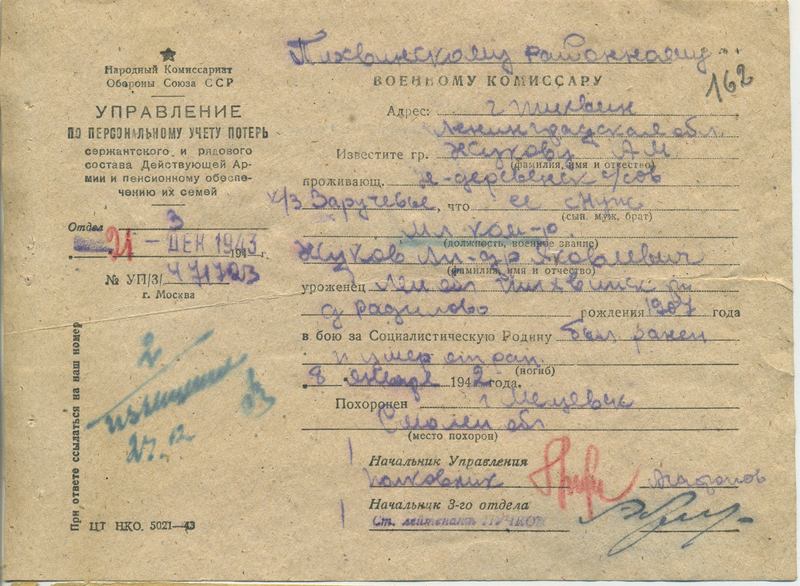 Народный Комиссариат
Обороны Союза ССР
УПРАВЛЕНИЕ
ПО ПЕРСОНАЛЬНОМУ УЧЕТУ ПОТЕРЬ
сержантского и рядового
состава Действующей Ар-
мии и пенсионному обеспе-
чению их семей
Отдел 3
21 - ДЕК 1943
№ УП/3/
г. Москва
При ответе ссылаться на наш номер
2
извещения
27.12
ЦТ НКО. 5021—43
162
Тихвинскому районному
ВОЕННОМУ КОМИССАРУ
Адрес: г Тихвин
Ленинградская обл
Известите гр. Жукову А М
(фамилия, имя и отчество)
проживающ. с/сов
Заручевье, что ее муж
(сын, муж, брат)
мл. ком-р.
(должность, военное звание)
Жуков Ал-др Яковлевич
(фамилия, имя и отчество)
уроженец Лен обл Тихвинск
д Радилово рождения 1907 года
в бою за Социалистическую Родину был ранен
и умер от ран
(погиб)
8 января 1942 года.
Похоронен г Мещевск
Смолен обл
(место похорон)
Начальник Управления
полковник Агафонов
Начальник 3-го отдела
Ст. лейтенант ПУЧКОВ